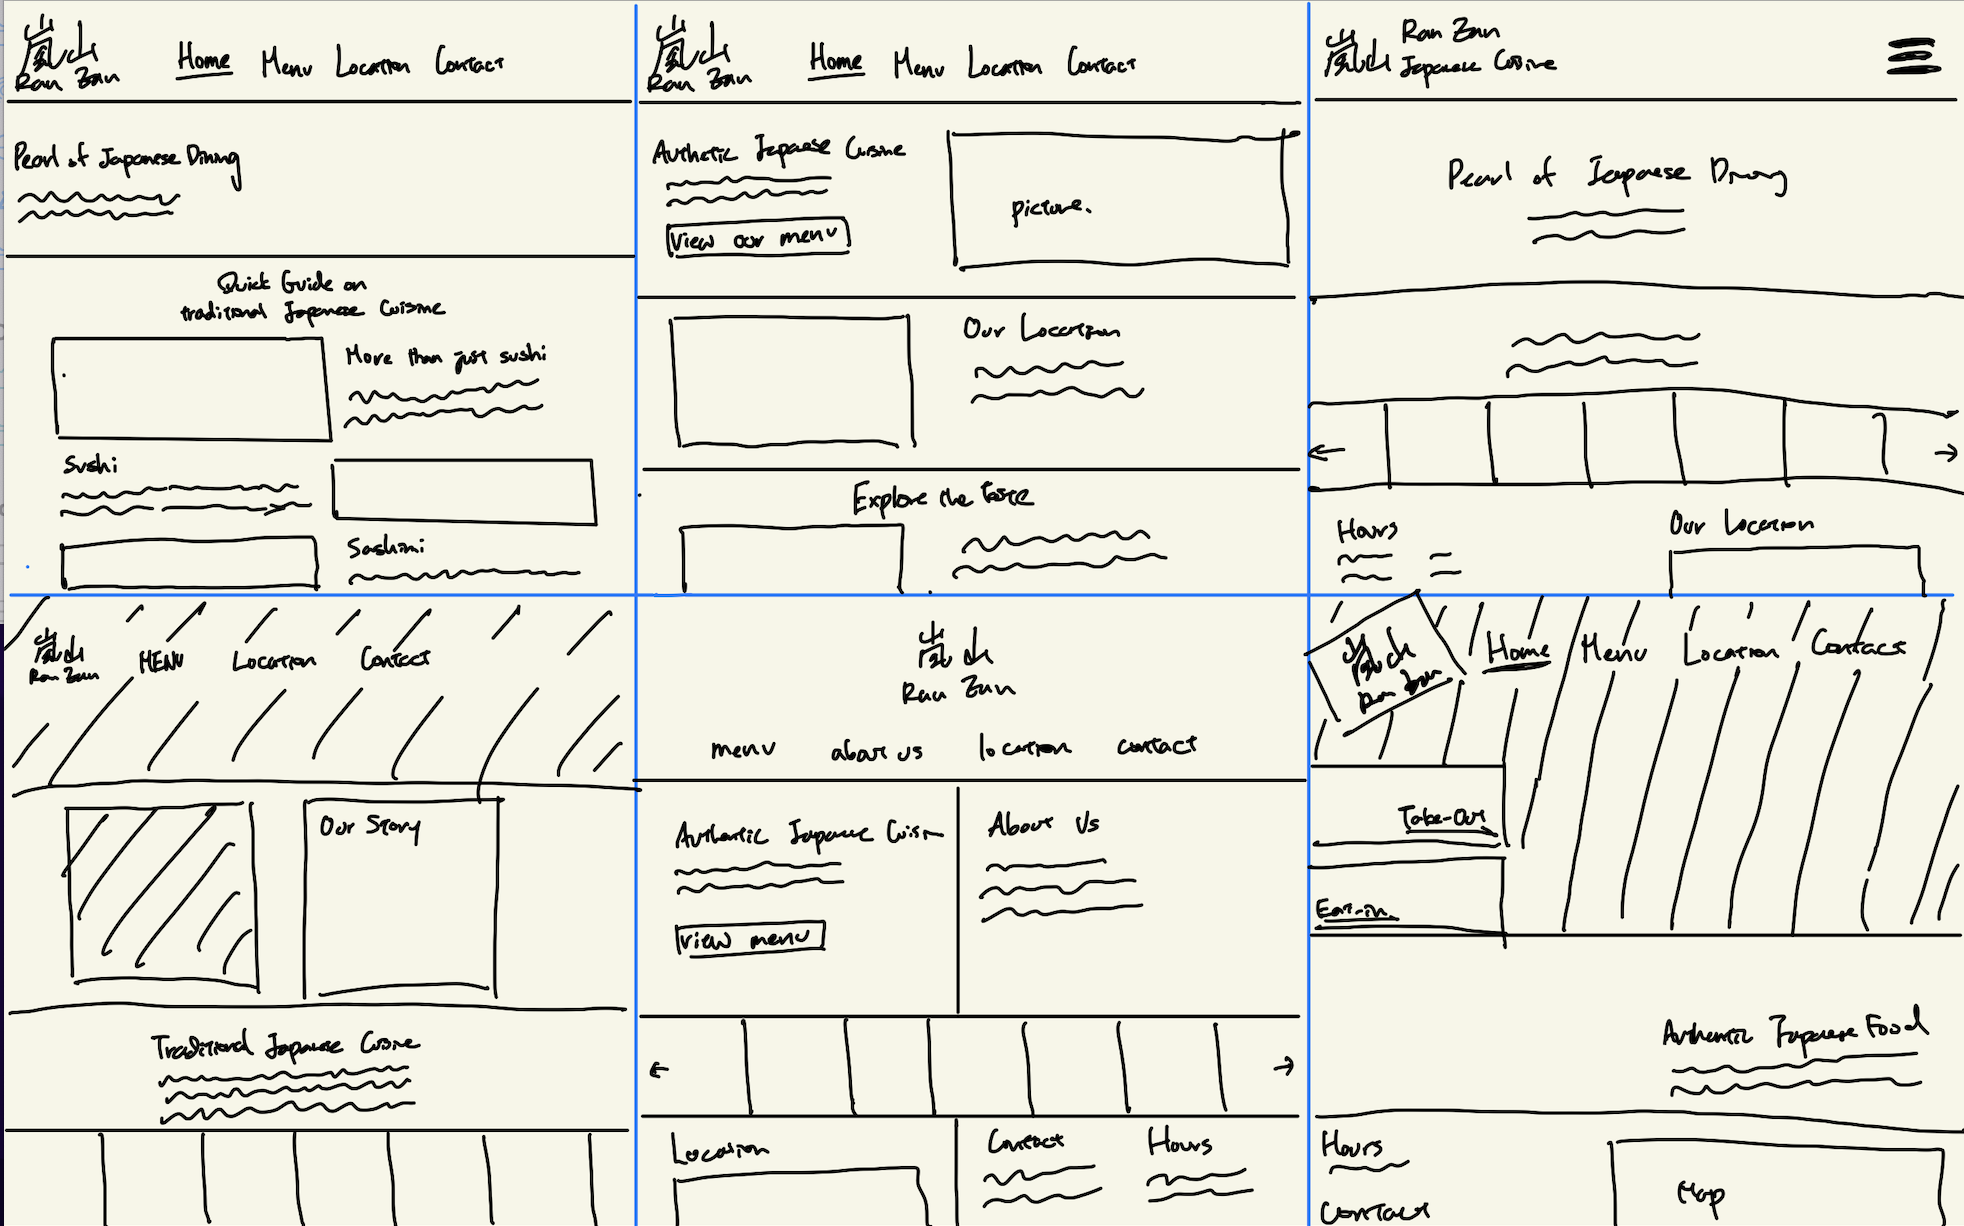 嵐山
Ran Zan
Home Menu Location Contact
Pearl of Japanese Dining
Quick Guide on
traditional Japanese Cuisine
More than just sushi
Sushi
Sashimi
嵐山
Ran Zan
Home Menu Location Contact
Authetic Japanese Cuisine
View our menu
picture.
Our Location
Explore the taste
嵐山
Ran Zan
Japanese Cuisine
Pearl of Japanese Dining
Hours
Our Location
嵐山
Ran Zan
MENU Location Contact
Our Story
Traditional Japanese Cuisine
嵐山
Ran Zan
menu about us location contact
Authentic Japanese Cuisin
View menu
About Us
Location
Contact
Hours
嵐山
Ran Zan
Home Menu Location Contact
Take-Out
Eat-in
Authentic Japanese Food
Hours
Contact
Map